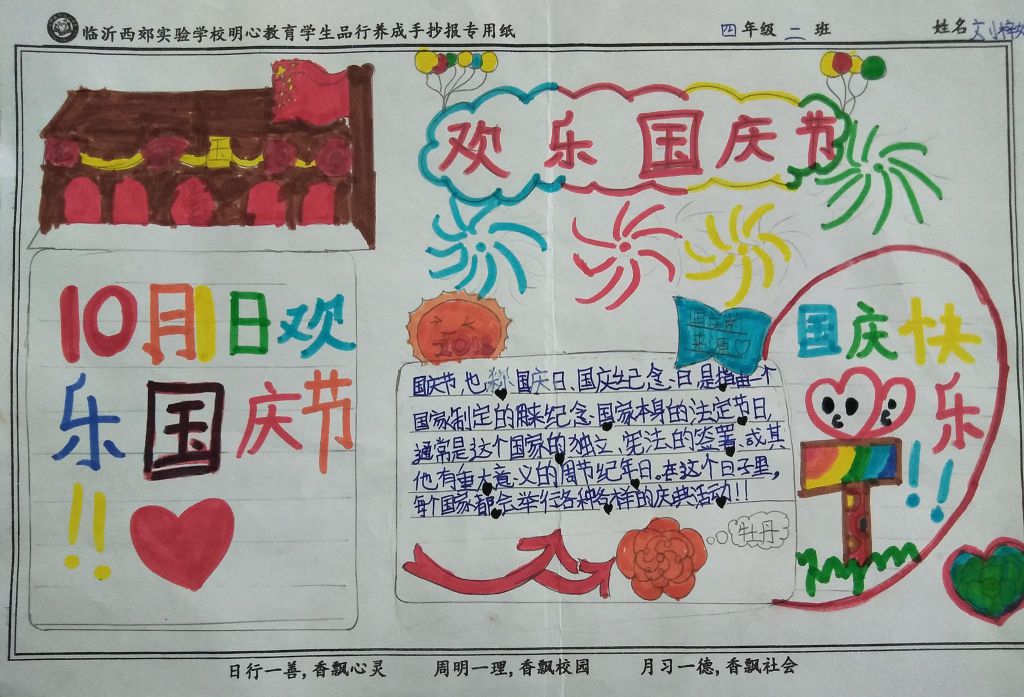 临沂西郊实验学校明心教育学生品行养成手抄报专用纸
四年级 二 班
姓名
欢乐国庆节
10月1日欢
乐国庆节
!!
2018
国庆节
国庆快
乐
!!
国庆节也称国庆日、国庆纪念日,是指由一个
国家制定的用来纪念国家本身的法定节日,
通常是这个国家的独立、宪法的签署、或其
他有重大意义的周节纪年日,在这个日子里,
每个国家都会举行各种各样的庆典活动!!
牡丹
日行一善,香飘心灵 周明一理,香飘校园 月习一德,香飘社会